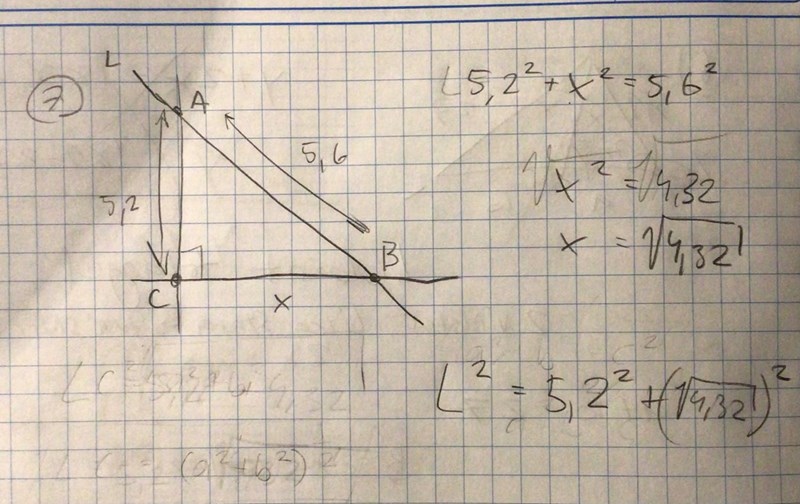 7
L
A
5,6
5,2
B
C
x
L5,2² + x² = 5,6²
√x² = √4,32
x = √4,32
L² = 5,2² + (√4,32)²